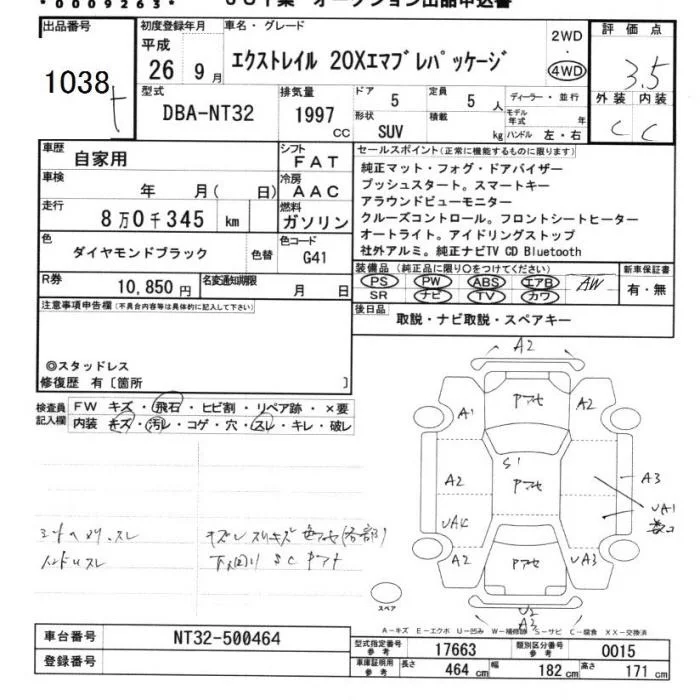 *0009263*
出品番号
1038
初度登録年月
平成
26 9月
車名・グレード
エクストレイル 20Xエマブレパッケージ
2WD
・
4WD
評価点
3.5
外装 内装
C C
型式
DBA-NT32
排気量
1997
CC
ドア 5
定員 5 人
ディーラー・並行
形状
SUV
積載
kg
モデル年式 年
ハンドル 左・右
車歴
自家用
シフト
FAT
車検
年 月( 日)
冷房
AAC
走行
8万0千345 km
燃料
ガソリン
色
ダイヤモンドブラック
色替
色コード
G41
R券
10,850円
名変通知期限
月 日
セールスポイント(正常に機能するものに限ります)
純正マット・フォグ・ドアバイザー
プッシュスタート。スマートキー
アラウンドビューモニター
クルーズコントロール。フロントシートヒーター
オートライト。アイドリングストップ
社外アルミ。純正ナビTV CD Bluetooth
装備品(純正品に限り○をつけてください)
PS PW ABS エアB AW
SR ナビ TV カワ
新車保証書
有・無
後日品
取説・ナビ取説・スペアキー
注意事項申告欄(不具合内容等は具体的に記入して下さい)
◎スタッドレス
修復歴 有〔箇所 〕
検査員
記入欄
FW キズ・飛石・ヒビ割・リペア跡・×要
内装 キズ・汚レ・コゲ・穴・スレ・キレ・破レ
A2
A1
A2
S1
A2
A3
UA1
A2
UA3
U2
A3
スペア
A-キズ E-エクボ U-凹み W-補修跡 S-サビ C-腐食 XX-交換済
車台番号
NT32-500464
登録番号
型式指定番号
参考
17663
類別区分番号
参考
0015
車庫証明用
参考
長さ 464 cm
幅 182 cm
高さ 171 cm